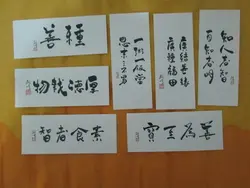 種善
厚德載物
素食者智
一粥一飯當
思來之不易
廣結善緣
廣種福田
知人者智
自知者明
善為至寶